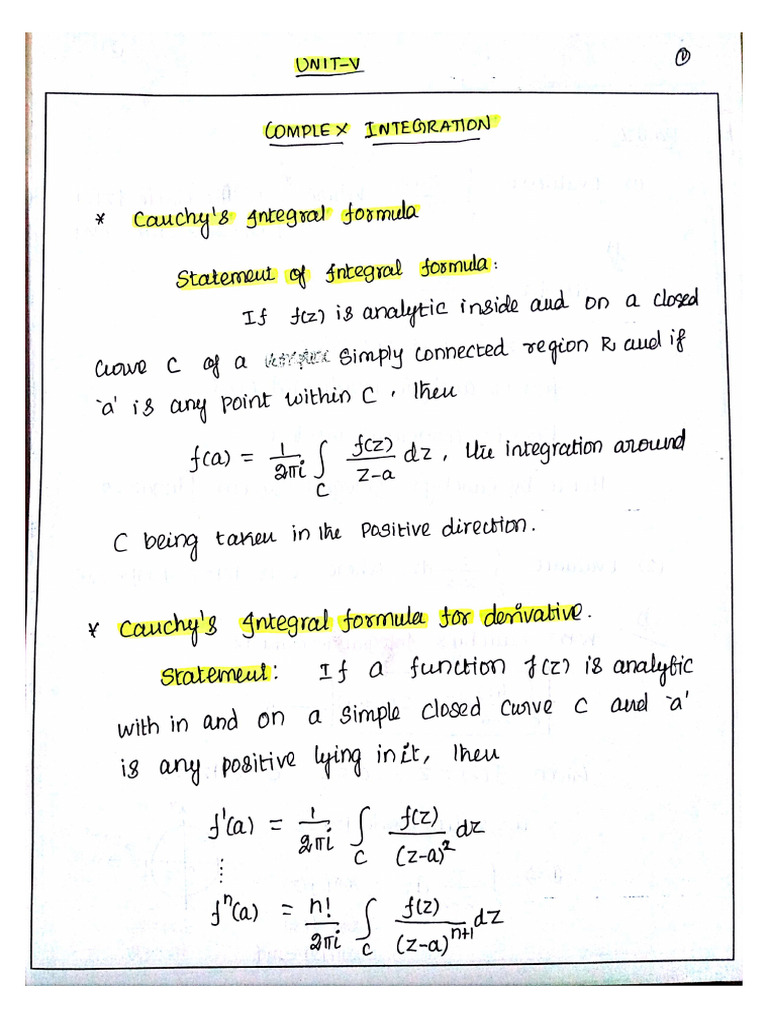 UNIT-V
①
COMPLEX INTEGRATION
* Cauchy's Integral formula
Statement of Integral formula:
If f(z) is analytic inside and on a closed
curve C of a simply connected region R and if
'a' is any point within C, then
f(a) = 1/2πi ∫_C f(z)/(z-a) dz, the integration around
C being taken in the positive direction.
* Cauchy's Integral formula for derivative.
Statement: If a function f(z) is analytic
with in and on a simple closed curve C and 'a'
is any positive lying in it, then
f'(a) = 1/2πi ∫_C f(z)/(z-a)² dz
⋮
fⁿ(a) = n!/2πi ∫_C f(z)/(z-a)ⁿ⁺¹ dz